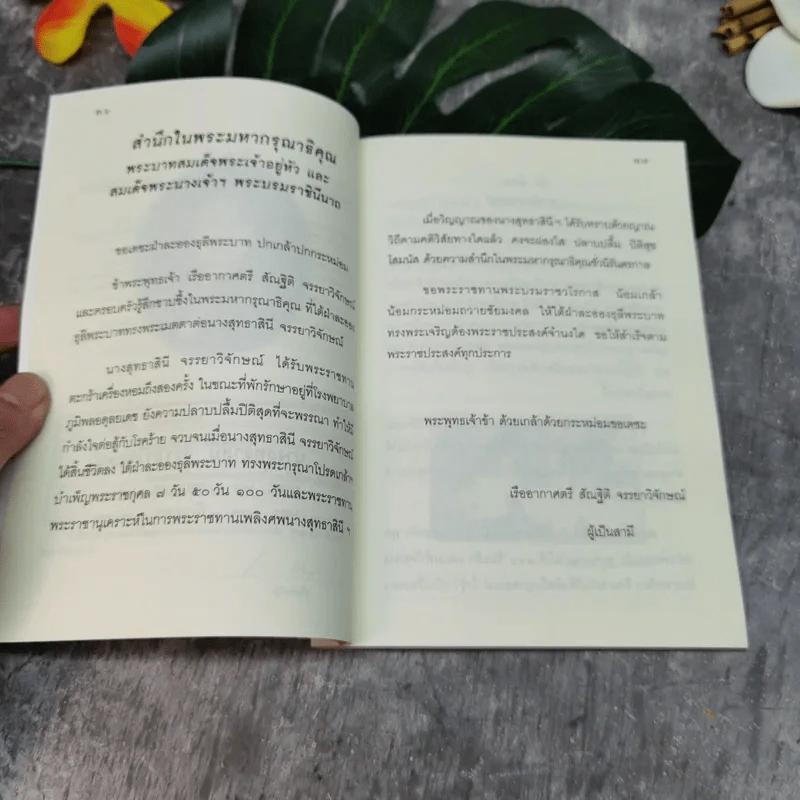 สำนึกในพระมหากรุณาธิคุณ
พระบาทสมเด็จพระเจ้าอยู่หัว และ
สมเด็จพระนางเจ้าฯ พระบรมราชินีนาถ
ขอเดชะฝ่าละอองธุลีพระบาท ปกเกล้าปกกระหม่อม
ข้าพระพุทธเจ้า เรืออากาศตรี สัณฐิติ จรรยาวิจักษณ์
และครอบครัวรู้สึกซาบซึ้งในพระมหากรุณาธิคุณ ที่ใต้ฝ่าละออง
ธุลีพระบาททรงพระเมตตาต่อนางสุทธาสินี จรรยาวิจักษณ์
นางสุทธาสินี จรรยาวิจักษณ์ ได้รับพระราชทาน
ตะกร้าเครื่องหอมถึงสองครั้ง ในขณะที่พักรักษาอยู่ที่โรงพยาบาล
ภูมิพลอดุลยเดช ยังความปลาบปลื้มปิติสุดที่จะพรรณา ทำให้มี
กำลังใจต่อสู้กับโรคร้าย จวบจนเมื่อนางสุทธาสินี จรรยาวิจักษณ์
ได้สิ้นชีวิตลง ใต้ฝ่าละอองธุลีพระบาท ทรงพระกรุณาโปรดเกล้าฯ
บำเพ็ญพระราชกุศล ๗ วัน ๕๐ วัน ๑๐๐ วันและพระราชทาน
พระราชานุเคราะห์ในการพระราชทานเพลิงศพนางสุทธาสินี ฯ
เมื่อวิญญาณของนางสุทธาสินี ฯ ได้รับทราบด้วยญาณ
วิถีตามคติวิสัยทางใดแล้ว คงจะผ่องใส ปลาบปลื้ม ปิติสุข
โสมนัส ด้วยความสำนึกในพระมหากรุณาธิคุณชั่วนิรันดรกาล
ขอพระราชทานพระบรมราชวโรกาส น้อมเกล้า
น้อมกระหม่อมถวายชัยมงคล ให้ใต้ฝ่าละอองธุลีพระบาท
ทรงพระเจริญต้องพระราชประสงค์จำนงใด ขอให้สำเร็จตาม
พระราชประสงค์ทุกประการ
พระพุทธเจ้าข้า ด้วยเกล้าด้วยกระหม่อมขอเดชะ
เรืออากาศตรี สัณฐิติ จรรยาวิจักษณ์
ผู้เป็นสามี